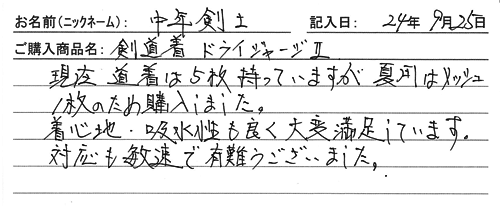 お名前(ニックネーム): 中年剣士 記入日: 24年 9月25日
ご購入商品名: 剣道着 ドライジャージⅡ
現在 道着は5枚持っていますが 夏用はメッシュ
1枚のため購入しました。
着心地・吸水性も良く大変満足しています。
対応も敏速で有難うございました。